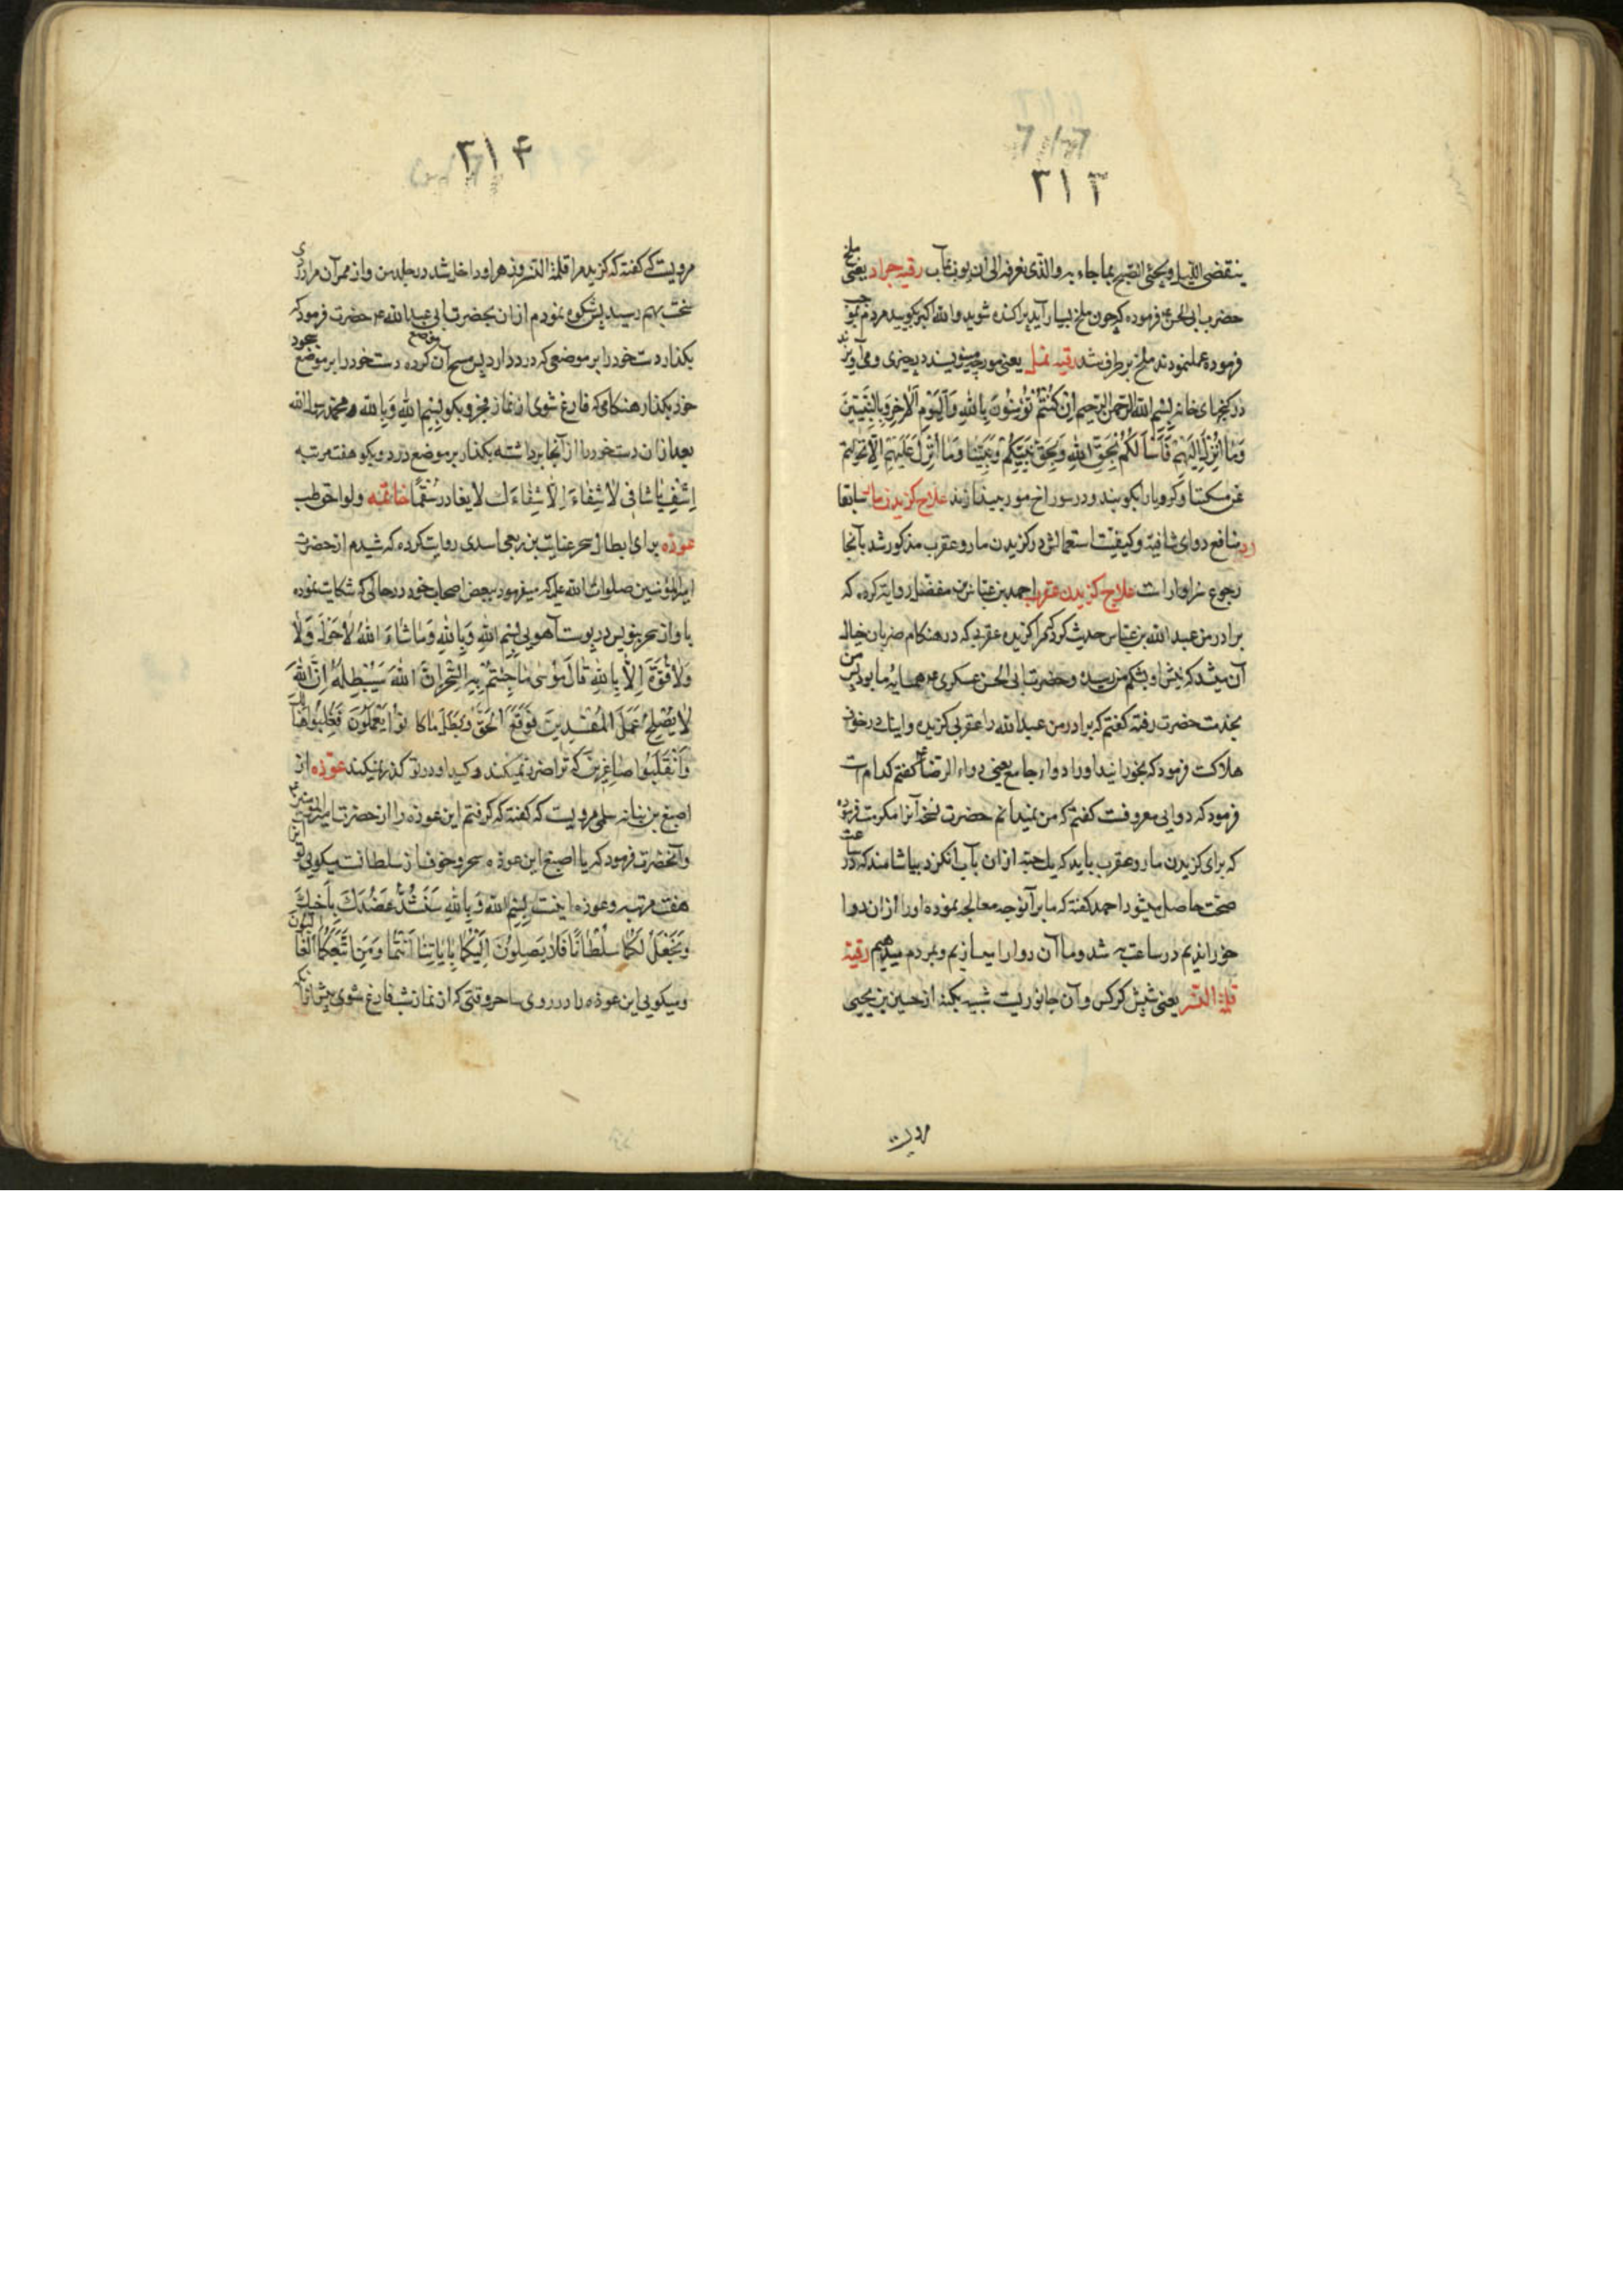 ۳۱۳
ینقضی اللیل ویجئ الصبح بما جاء به والذی نعرفه الی ان یؤب رقیه جراد یعنی ملخ
حضرت ابی الحسن ع فرموده که چون ملخ بسیار آید پراکنده شوید والله اکبر بکویید مردم بموجب
فرموده عمل نمودند ملخ برطرف شد رقیه نمل یعنی مورچه مینویسند در چیزی ومی آویزند
در کنجهای خانه بسم الله الرحمن الرحیم ان کنتم تؤمنون بالله والیوم الآخر وبالنبیین
وما انزل الیهم فاسالکم بحق الله وبحق نبیکم ونبینا وما انزل علیهم الا تحولتم
عن مسکننا وکرویا را بکوبند ودر سوراخ مورچه بیندازند علاج کزیدن مار سابقا
در منافع دوای شافیه وکیفیت استعمالش در کزیدن مار وعقرب مذکور شد بآنجا
رجوع سزاوار است علاج کزیدن عقرب احمد بن عباس بن مفضل روایت کرده که
برادر من عبد الله بن عباس حدیث کرد که مرا کزیده عقربی که در هنکام ضربان خیال
آن میشد که نیش او بشکم من رسیده وحضرت ابی الحسن عسکری ع همسایه ما بود پس من
بخدمت حضرت رفته کفتم که برادر من عبدالله را عقربی کزیده واینک در خوف
هلاکت فرمود که بخورانید اورا دواء جامع یعنی دواء الرضا ع کفتم کدام است
فرمود که دوایی معروفست کفتم که من نمیدانم حضرت نسخه آنرا مکرمت فرموده
که برای کزیدن مار وعقرب باید که یک حبه از ان بآب انکزد بیاشامند که در ساعت
صحت حاصل میشود احمد کفته که ما بر آنوجه معالجه نموده اورا از ان دوا
خوراندیم در ساعت به شد وما آن دوا را میسازیم وبمردم میدهیم رقیه
قملة النسر یعنی شپش کرکس وآن جانوریست شبیه بکنه از حسین بن یحیی
مرویست
۳۱۴
مرویست که کفته که کزید مرا قملة النسر وزهر او داخل شد در جلد من واز ممر آن مرا دردی
سخت بهم رسید پس شکوه نمودم از ان بحضرت ابی عبدالله ع حضرت فرمود که
بکذار دست خود را بر موضعی که درد دارد پس مسح آن کرده دست خود را بر موضع سجود
خود بکذار هنکامی که فارغ شوی از نماز فجر وبکو بسم الله وبالله ومحمد رسول الله
بعد از ان دست خود را از آنجا برداشته بکذار بر موضع درد وبکو هفت مرتبه
اشف یا شافی لا شفاء الا شفاءک لا یغادر سقما خاتمه ولواحق طب
عوذه برای ابطال سحر عنایت بن ربعی اسدی روایت کرده که شنیدم از حضرت
امیرالمؤمنین صلوات الله علیه که میفرمود ببعض اصحاب خود در حالی که شکایت نموده
باو از سحر بنویس در پوست آهویی بسم الله وبالله وما شاء الله لا حول ولا
ولا قوة الا بالله قال موسی ما جئتم به السحر ان الله سیبطله ان الله
لا یصلح عمل المفسدین فوقع الحق وبطل ما کانوا یعملون فغلبوا هنالک
وانقلبوا صاغرین که ترا ضرر نمیکند وکید او در تو کذر نمیکند عوذه از
اصبغ بن نباته سلمی مرویست که کفته که کرفتم این عوذه را از حضرت امیرالمؤمنین ع
وآنحضرت فرمود که یا اصبغ این عوذه سحر وخوف از سلطانست میکویی تو این
هفت مرتبه وعوذه اینست بسم الله وبالله سنشد عضدک باخیک
ونجعل لکما سلطانا فلا یصلون الیکما بایاتنا انتما ومن اتبعکما الغالبون
ومیکویی این عوذه را در روی ساحر وقتی که از نماز شب فارغ شوی پیش از آنکه